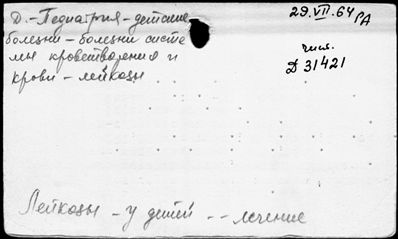 Д.-Педиатрия-детские
болезни-болезни систе
мы кровотворения и
крови-лейкозы
29.VII.64 РА
чизл.
Д 31421
Лейкозы - у детей -- лечение